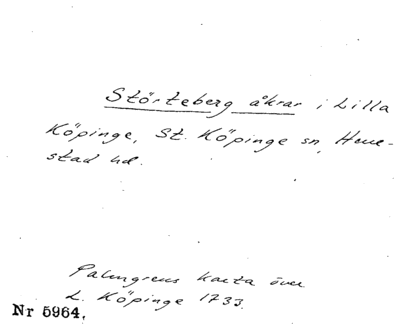 Störteberg åkrar i Lilla
Köpinge, St. Köpinge sn, Herre-
stad hd.
Palmgrens karta över
L. Köpinge 1733.
Nr 5964.